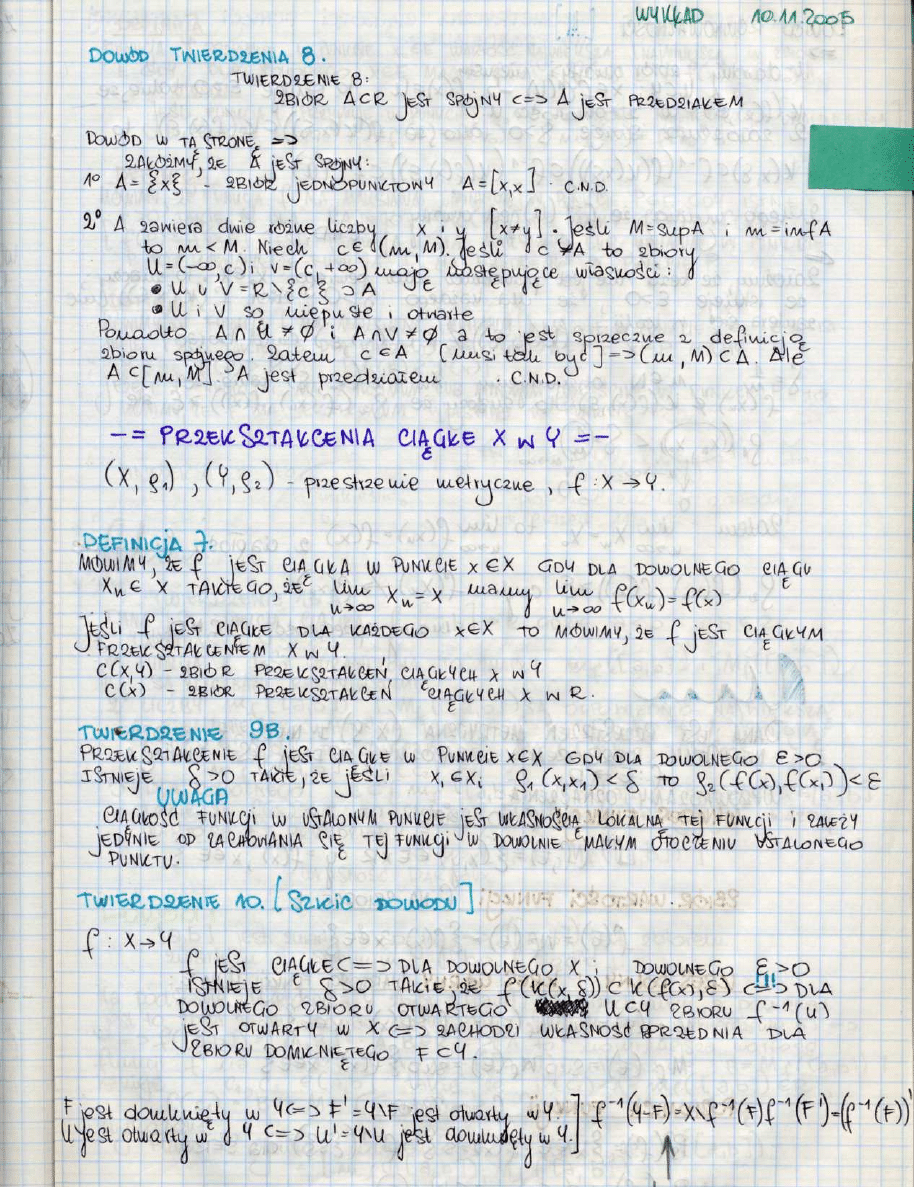 WYKŁAD 10.11.2005
DOWÓD TWIERDZENIA 8.
TWIERDZENIE 8:
ZBIÓR A⊂R JEST SPÓJNY <=> A JEST PRZEDZIAŁEM
DOWÓD W TĄ STRONĘ =>
ZAŁÓŻMY, ŻE A JEST SPÓJNY:
1° A = {x} - ZBIÓR JEDNOPUNKTOWY A = [x,x] . C.N.D.
2° A zawiera dwie różne liczby x i y [x≠y]. Jeśli M=supA i m=infA
to m < M. Niech c∈(m,M). Jeśli c∉A to zbiory
U=(-∞,c) i V=(c,+∞) mają następujące własności:
• U∪V=R\{c}⊃A
• U i V są niepuste i otwarte
Ponadto A∩U≠∅ i A∩V≠∅ a to jest sprzeczne z definicją
zbioru spójnego. Zatem c∈A [musi tak być] => (m,M)⊂A. Ale
A⊂[m,M]. A jest przedziałem . C.N.D.
-= PRZEKSZTAŁCENIA CIĄGŁE X W Y =-
(X,ρ₁), (Y,ρ₂) - przestrzenie metryczne, f:X→Y.
DEFINICJA 7.
MÓWIMY, ŻE f JEST CIĄGŁA W PUNKCIE x∈X GDY DLA DOWOLNEGO CIĄGU
xₙ∈X TAKIEGO, ŻE lim n→∞ xₙ=x mamy lim n→∞ f(xₙ)=f(x)
JEŚLI f JEST CIĄGŁE DLA KAŻDEGO x∈X TO MÓWIMY, ŻE f JEST CIĄGŁYM
PRZEKSZTAŁCENIEM X W Y.
C(X,Y) - ZBIÓR PRZEKSZTAŁCEŃ CIĄGŁYCH X W Y
C(X) - ZBIÓR PRZEKSZTAŁCEŃ CIĄGŁYCH X W R.
TWIERDZENIE 9B.
PRZEKSZTAŁCENIE f JEST CIĄGŁE W PUNKCIE x∈X GDY DLA DOWOLNEGO ε>0
ISTNIEJE δ>0 TAKIE, ŻE JEŚLI x₁∈X i ρ₁(x,x₁)<δ TO ρ₂(f(x),f(x₁))<ε
UWAGA
CIĄGŁOŚĆ FUNKCJI W USTALONYM PUNKCIE JEST WŁASNOŚCIĄ LOKALNĄ TEJ FUNKCJI I ZALEŻY
JEDYNIE OD ZACHOWANIA SIĘ TEJ FUNKCJI W DOWOLNIE MAŁYM OTOCZENIU USTALONEGO
PUNKTU.
TWIERDZENIE 10. [SZKIC DOWODU]
f: X→Y
f JEST CIĄGŁE <=> DLA DOWOLNEGO x i DOWOLNEGO ε>0
ISTNIEJE δ>0 TAKIE, ŻE f(K(x,δ))⊂K(f(x),ε) <=> DLA
DOWOLNEGO ZBIORU OTWARTEGO U⊂Y ZBIORU f⁻¹(U)
JEST OTWARTY W X <=> ZACHODZI WŁASNOŚĆ POPRZEDNIA DLA
ZBIORU DOMKNIĘTEGO F⊂Y.
F jest domknięty w Y<=>F'=Y\F jest otwarty w Y. ] f⁻¹(Y-F)=X\f⁻¹(F) f⁻¹(F')=(f⁻¹(F))'
U jest otwarty w Y <=> U'=Y\U jest domknięty w Y.